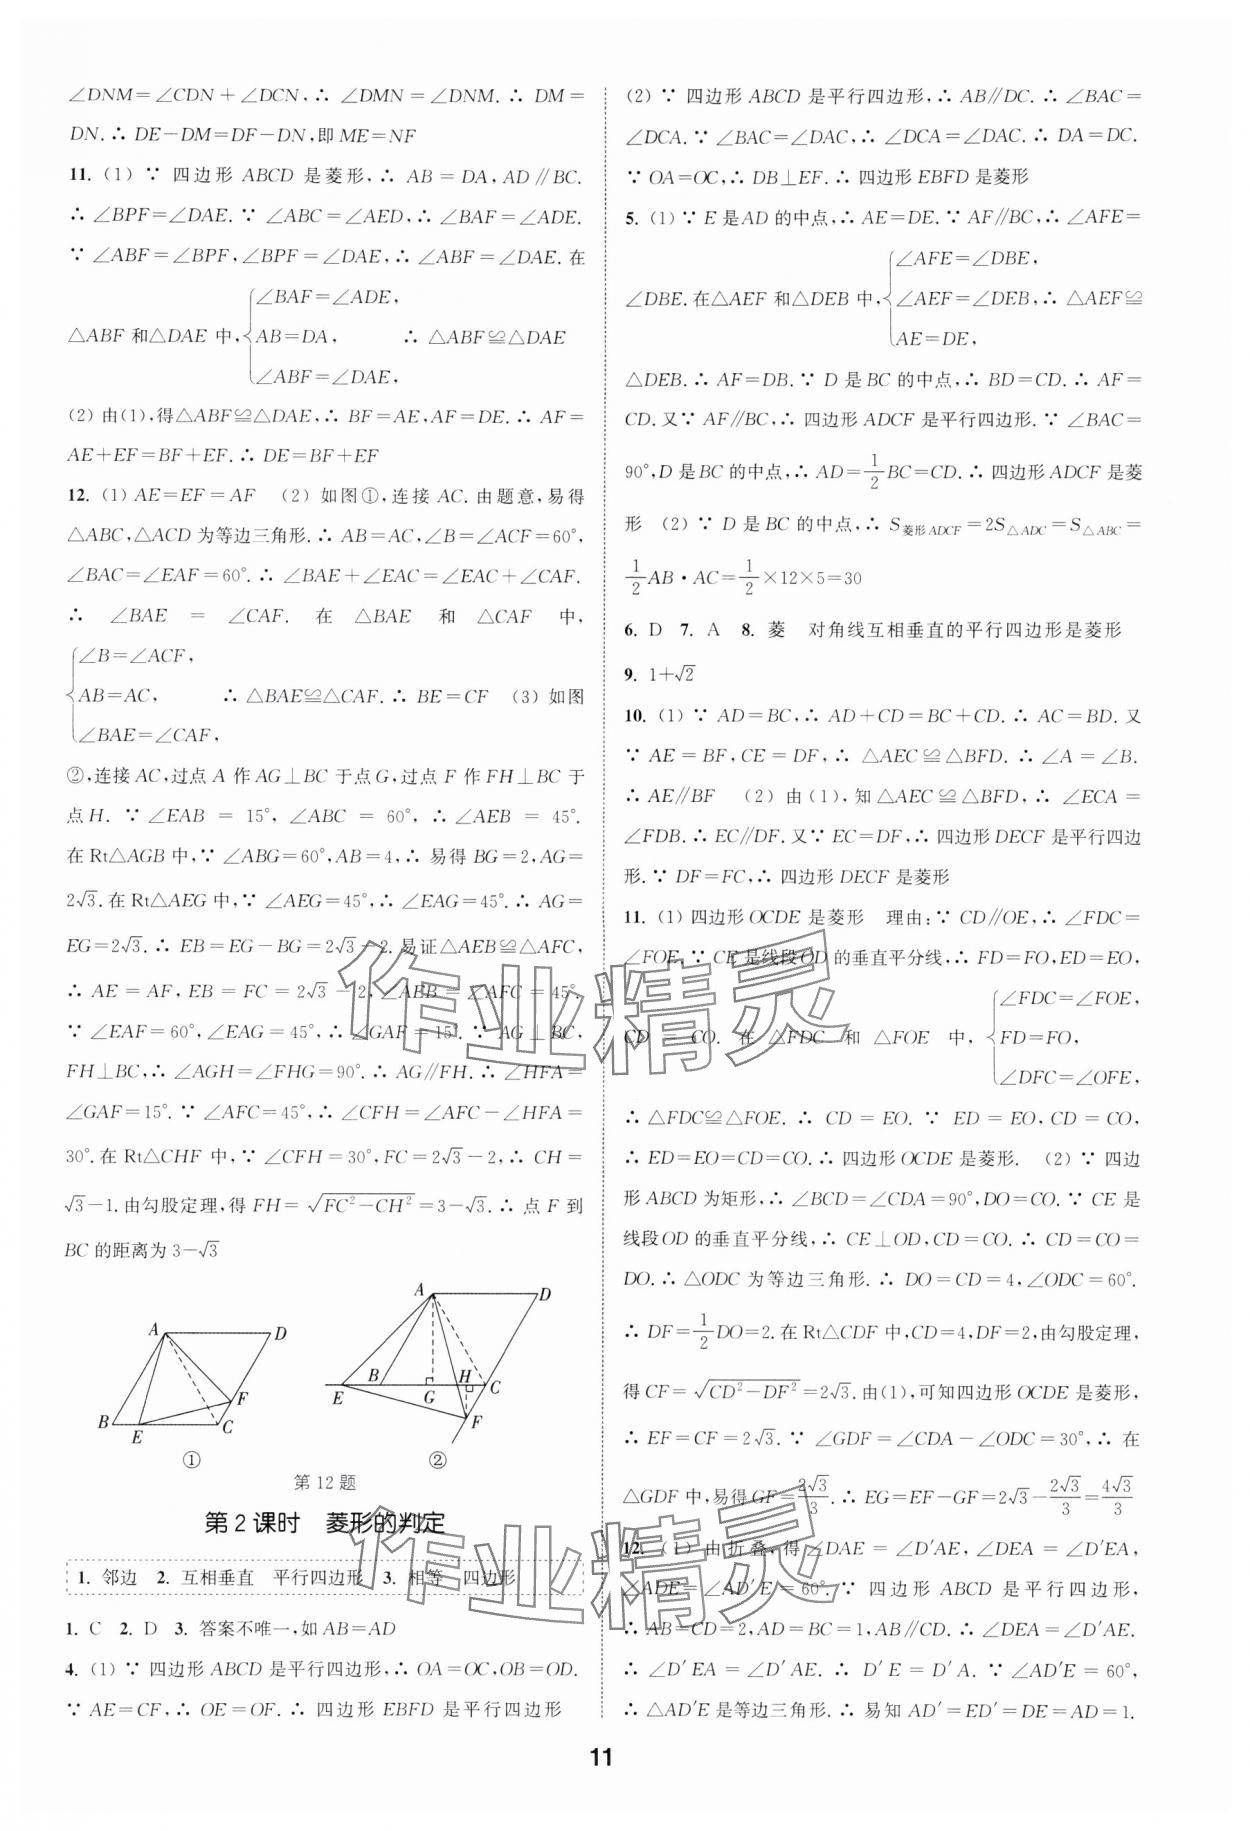 ∠DNM=∠CDN+∠DCN,∴ ∠DMN=∠DNM.∴ DM=
DN.∴ DE-DM=DF-DN,即ME=NF
11. (1) ∵ 四边形 ABCD 是菱形,∴ AB=DA,AD∥BC.
∴ ∠BPF=∠DAE.∵ ∠ABC=∠AED,∴ ∠BAF=∠ADE.
∵ ∠ABF=∠BPF,∠BPF=∠DAE,∴ ∠ABF=∠DAE. 在
∠BAF=∠ADE,
△ABF 和△DAE 中,{AB=DA, ∴ △ABF≌△DAE
∠ABF=∠DAE,
(2) 由(1),得△ABF≌△DAE,∴ BF=AE,AF=DE.∴ AF=
AE+EF=BF+EF.∴ DE=BF+EF
12. (1) AE=EF=AF (2) 如图①,连接 AC. 由题意,易得
△ABC,△ACD 为等边三角形.∴ AB=AC,∠B=∠ACF=60°,
∠BAC=∠EAF=60°.∴ ∠BAE+∠EAC=∠EAC+∠CAF.
∴ ∠BAE = ∠CAF. 在 △BAE 和 △CAF 中,
∠B=∠ACF,
{AB=AC, ∴ △BAE≌△CAF.∴ BE=CF (3) 如图
∠BAE=∠CAF,
②,连接 AC,过点 A 作 AG⊥BC 于点 G,过点 F 作 FH⊥BC 于
点 H. ∵ ∠EAB = 15°, ∠ABC = 60°, ∴ ∠AEB = 45°.
在 Rt△AGB 中,∵ ∠ABG=60°,AB=4,∴ 易得 BG=2,AG=
2√3. 在 Rt△AEG 中,∵ ∠AEG=45°,∴ ∠EAG=45°.∴ AG=
EG=2√3.∴ EB=EG-BG=2√3-2. 易证△AEB≌△AFC,
∴ AE = AF, EB = FC = 2√3 - 2, ∠AEB = ∠AFC = 45°.
∵ ∠EAF=60°,∠EAG=45°,∴ ∠GAF=15°.∵ AG⊥BC,
FH⊥BC,∴ ∠AGH=∠FHG=90°.∴ AG∥FH.∴ ∠HFA=
∠GAF=15°.∵ ∠AFC=45°,∴ ∠CFH=∠AFC-∠HFA=
30°. 在 Rt△CHF 中,∵ ∠CFH=30°,FC=2√3-2,∴ CH=
√3-1. 由勾股定理,得 FH=√(FC²-CH²)=3-√3.∴ 点 F 到
BC 的距离为 3-√3
A D B E C F ①
A D B E G H C F ②
第 12 题
第 2 课时 菱形的判定
1. 邻边 2. 互相垂直 平行四边形 3. 相等 四边形
1. C 2. D 3. 答案不唯一,如 AB=AD
4. (1) ∵ 四边形 ABCD 是平行四边形,∴ OA=OC,OB=OD.
∵ AE=CF,∴ OE=OF.∴ 四边形 EBFD 是平行四边形
(2) ∵ 四边形 ABCD 是平行四边形,∴ AB∥DC.∴ ∠BAC=
∠DCA.∵ ∠BAC=∠DAC,∴ ∠DCA=∠DAC.∴ DA=DC.
∵ OA=OC,∴ DB⊥EF.∴ 四边形 EBFD 是菱形
5. (1) ∵ E 是 AD 的中点,∴ AE=DE.∵ AF∥BC,∴ ∠AFE=
∠AFE=∠DBE,
∠DBE. 在△AEF 和△DEB 中,{∠AEF=∠DEB,∴ △AEF≌
AE=DE,
△DEB.∴ AF=DB.∵ D 是 BC 的中点,∴ BD=CD.∴ AF=
CD. 又∵ AF∥BC,∴ 四边形 ADCF 是平行四边形.∵ ∠BAC=
90°,D 是 BC 的中点,∴ AD=1/2BC=CD.∴ 四边形 ADCF 是菱
形 (2) ∵ D 是 BC 的中点,∴ S菱形ADCF=2S△ADC=S△ABC=
1/2AB·AC=1/2×12×5=30
6. D 7. A 8. 菱 对角线互相垂直的平行四边形是菱形
9. 1+√2
10. (1) ∵ AD=BC,∴ AD+CD=BC+CD.∴ AC=BD. 又
∵ AE = BF, CE = DF, ∴ △AEC≌△BFD. ∴ ∠A = ∠B.
∴ AE∥BF (2) 由(1),知△AEC≌△BFD,∴ ∠ECA=
∠FDB.∴ EC∥DF. 又∵ EC=DF,∴ 四边形 DECF 是平行四边
形.∵ DF=FC,∴ 四边形 DECF 是菱形
11. (1) 四边形 OCDE 是菱形 理由:∵ CD∥OE,∴ ∠FDC=
∠FOE.∵ CE 是线段 OD 的垂直平分线,∴ FD=FO,ED=EO,
∠FDC=∠FOE,
CD = CO. 在 △FDC 和 △FOE 中,{FD=FO,
∠DFC=∠OFE,
∴ △FDC≌△FOE. ∴ CD = EO. ∵ ED = EO, CD = CO,
∴ ED=EO=CD=CO.∴ 四边形 OCDE 是菱形. (2) ∵ 四边
形 ABCD 为矩形,∴ ∠BCD=∠CDA=90°,DO=CO.∵ CE 是
线段 OD 的垂直平分线,∴ CE⊥OD,CD=CO.∴ CD=CO=
DO.∴ △ODC 为等边三角形.∴ DO=CD=4,∠ODC=60°.
∴ DF=1/2DO=2. 在 Rt△CDF 中,CD=4,DF=2,由勾股定理,
得 CF=√(CD²-DF²)=2√3. 由(1),可知四边形 OCDE 是菱形,
∴ EF=CF=2√3.∵ ∠GDF=∠CDA-∠ODC=30°,∴ 在
△GDF 中,易得 GF=2√3/3.∴ EG=EF-GF=2√3-2√3/3=4√3/3
12. (1) 由折叠,得∠DAE = ∠D′AE, ∠DEA = ∠D′EA,
∠ADE=∠AD′E=60°.∵ 四边形 ABCD 是平行四边形,
∴ AB=CD=2,AD=BC=1,AB∥CD.∴ ∠DEA=∠D′AE.
∴ ∠D′EA = ∠D′AE. ∴ D′E = D′A. ∵ ∠AD′E = 60°,
∴ △AD′E 是等边三角形.∴ 易知 AD′=ED′=DE=AD=1.
11
作业精灵
作业精灵